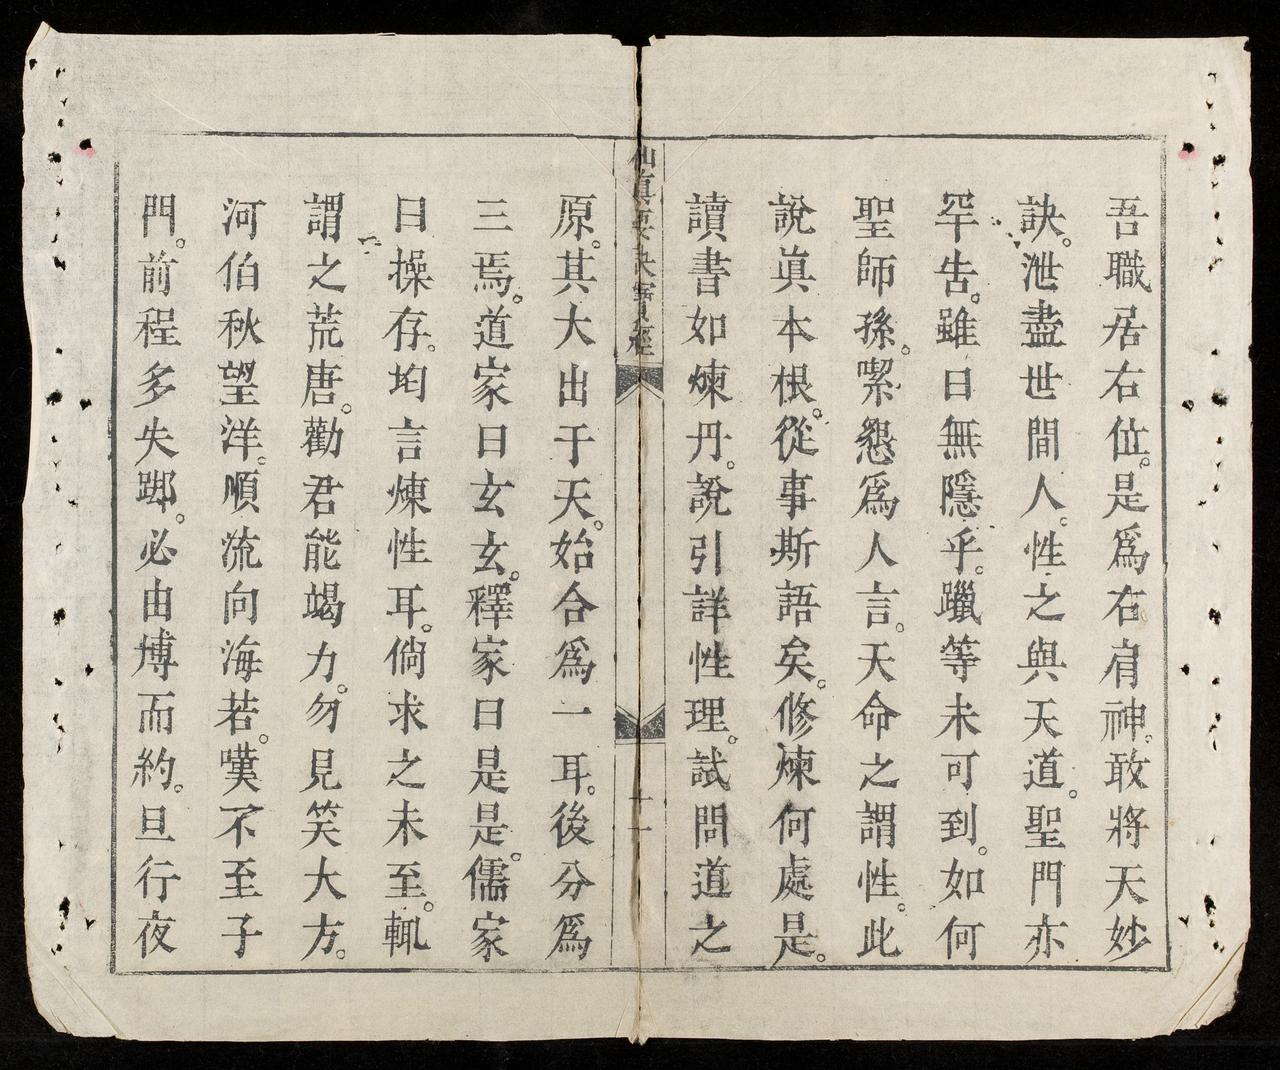 吾職居右位。是爲右肩神。敢將天妙
訣。泄盡世間人。性之與天道。聖門亦
罕告。雖曰無隱乎。躐等未可到。如何
聖師孫。喫懇爲人言。天命之謂性。此
說眞本根。從事斯語矣。修煉何處是。
讀書如煉丹。說引詳性理。試問道之
仙眞要訣寶經
十一
原。其大出于天。始合爲一耳。後分爲
三焉。道家曰玄玄。釋家曰是是。儒家
曰操存。均言煉性耳。倘求之未至。輒
謂之荒唐。勸君能竭力。勿見笑大方。
河伯秋望洋。順流向海若。嘆不至子
門。前程多失踋。必由博而約。旦行夜